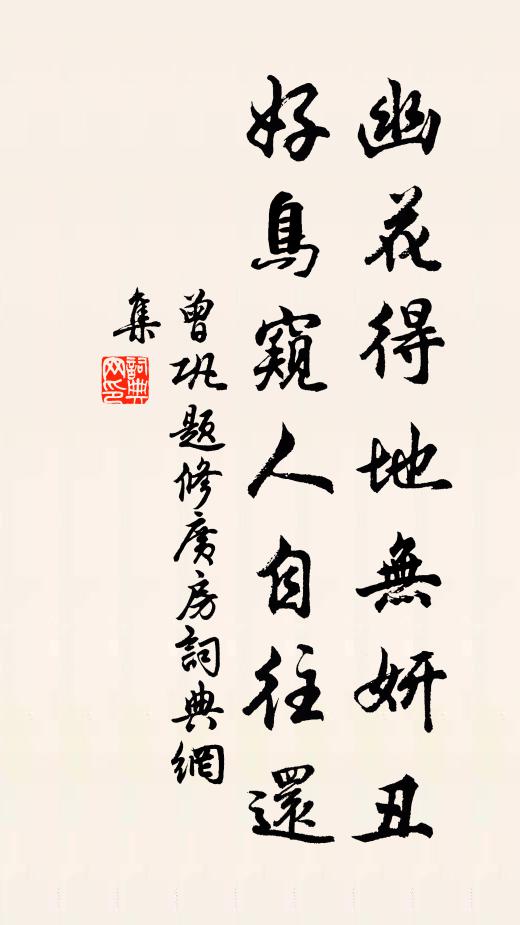 幽花得地無妍丑
好鳥窺人自往還
曾巩題修廣房詞典網
集
詞典
网印